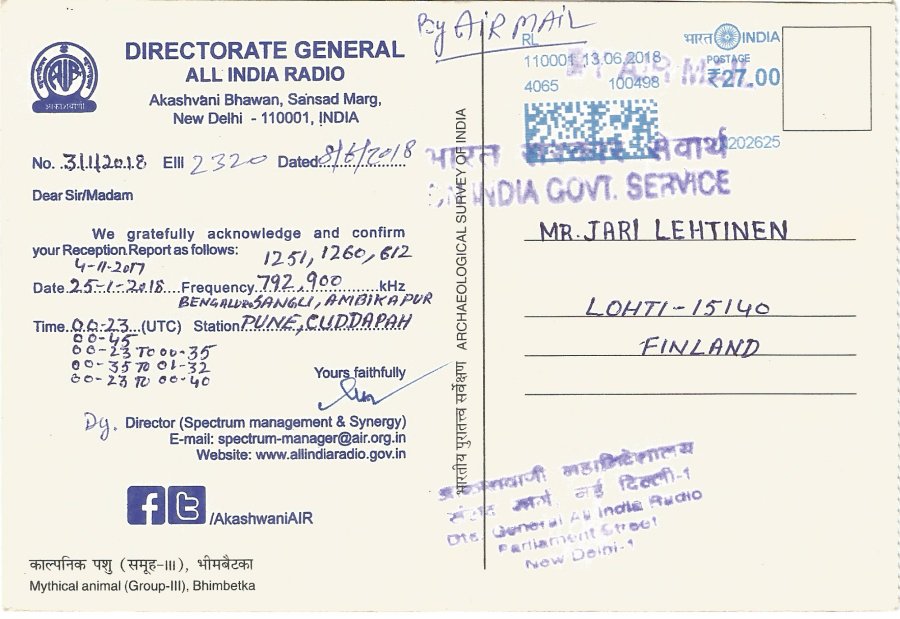 By AIR MAIL
DIRECTORATE GENERAL
ALL INDIA RADIO
Akashvani Bhawan, Sansad Marg,
New Delhi - 110001, INDIA
आकाशवाणी
No. 31/1/2018 EIII 2320 Dated 8/6/2018
Dear Sir/Madam
We gratefully acknowledge and confirm
your Reception Report as follows:
1251, 1260, 612
4-11-2017
Date 25-1-2018 Frequency 792,900 kHz
BENGALURU SANGLI, AMBIKAPUR
Time 00-23 (UTC) Station PUNE, CUDDAPAH
00-45
00-23 TO 00-35
00-35 TO 01-32
00-23 TO 00-40
Yours faithfully
Dy. Director (Spectrum management & Synergy)
E-mail: spectrum-manager@air.org.in
Website: www.allindiaradio.gov.in
/AkashwaniAIR
काल्पनिक पशु (समूह-III), भीमबैटका
Mythical animal (Group-III), Bhimbetka
भारतीय पुरातत्त्व सर्वेक्षण ARCHAEOLOGICAL SURVEY OF INDIA
RL
भारत INDIA
110001 13.06.2018
POSTAGE
₹27.00
4065 100498
202625
AIR MAIL
भारत सरकार सेवार्थ
INDIA GOVT. SERVICE
MR. JARI LEHTINEN
LOHTI-15140
FINLAND
आकाशवाणी महानिदेशालय
संसद मार्ग नई दिल्ली-1
Dte. General All India Radio
Parliament Street
New Delhi-1